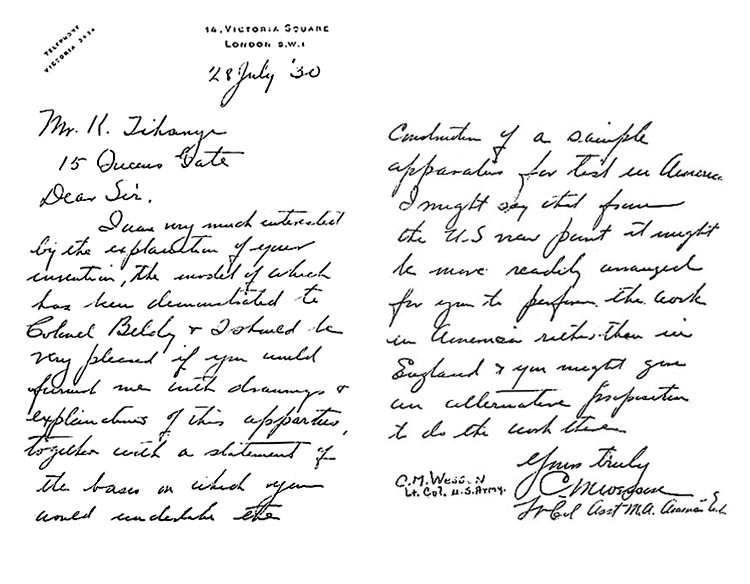 TELEPHONE
VICTORIA
14, VICTORIA SQUARE
LONDON S.W.1
28 July '30
Mr. K. Tihanyi
15 Queens Gate
Dear Sir,
I am very much interested
by the explanation of your
invention, the model of which
has been demonstrated to
Colonel & I should be
very pleased if you would
furnish me with drawings &
explanations of this apparatus,
together with a statement of
the bases on which you
would undertake the
Construction of a sample
apparatus for test in America.
I might say that from
the U.S view point it might
be more readily arranged
for you to perform the work
in America rather than in
England & you might give
an alternative proposition
to do the work there
Yours truly
C M Wesson
Lt Col Asst M.A. American
C.M. WESSON
Lt. Col. U.S. Army.